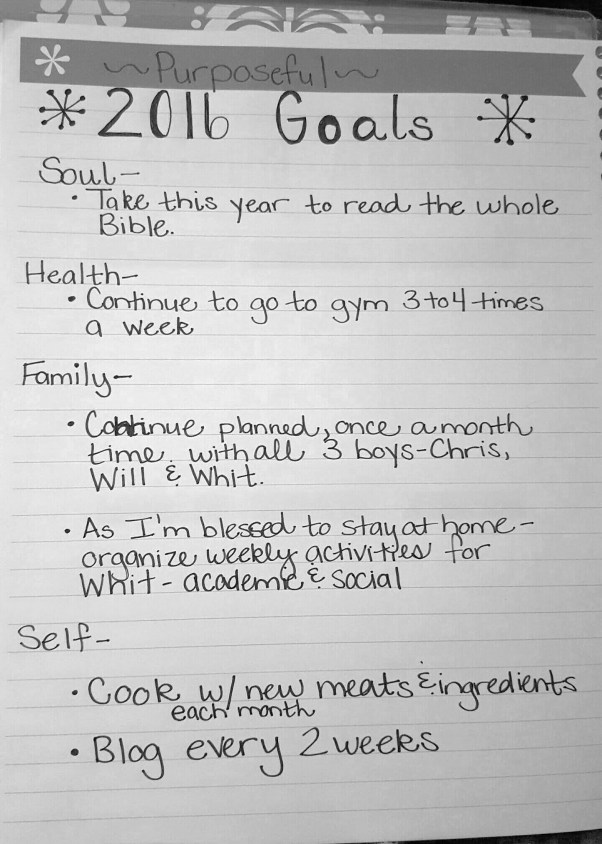 ~Purposeful~
2016 Goals
Soul-
• Take this year to read the whole
Bible.
Health-
• Continue to go to gym 3 to 4 times
a week
Family-
• Continue planned, once a month
time with all 3 boys-Chris,
Will & Whit.
• As I'm blessed to stay at home-
organize weekly activities for
Whit- academic & social
Self-
• Cook w/ new meats & ingredients
each month
• Blog every 2 weeks